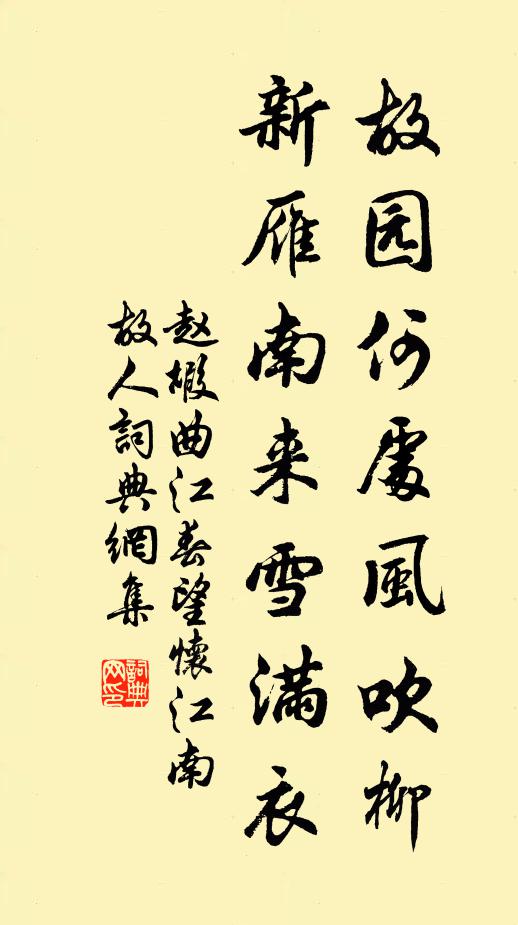 故园何處風吹柳
新雁南来雪满衣
赵嘏曲江春望懷江南
故人詞典網集
詞典网印